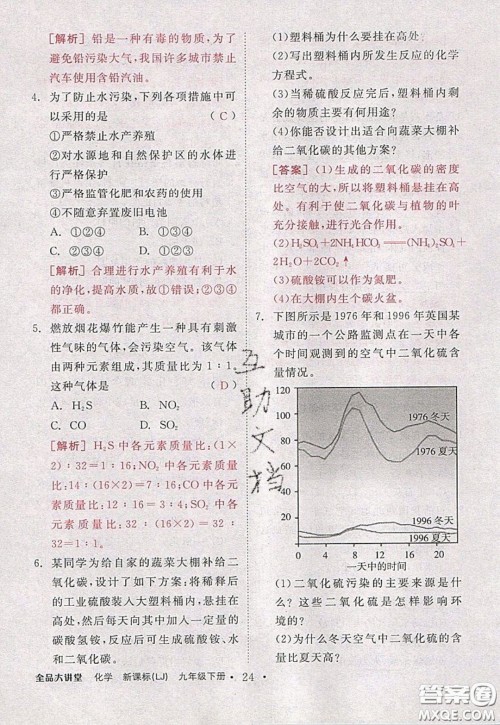 [解析] 铅是一种有毒的物质,为了
避免铅污染大气,我国许多城市禁止
汽车使用含铅汽油。
4. 为了防止水污染,下列各项措施中可
以采用的是 ( C )
①严格禁止水产养殖
②对水源地和自然保护区的水体进
行严格保护
③严格监管化肥和农药的使用
④不随意弃置废旧电池
A. ①②④ B. ①③④
C. ②③④ D. ①②③
[解析] 合理进行水产养殖有利于水
的净化,提高水质,故①错误;②③④
都正确。
5. 燃放烟花爆竹能产生一种具有刺激
性气味的气体,会污染空气。该气体
由两种元素组成,其质量比为 1∶1。
这种气体是 ( D )
A. H₂S B. NO₂
C. CO D. SO₂
[解析] H₂S 中各元素质量比:(1×
2)∶32=1∶16;NO₂ 中各元素质量
比:14∶(16×2)=7∶16;CO 中各元素
质量比:12∶16=3∶4;SO₂ 中各元
素质量比:32∶(16×2)=32∶
32=1∶1。
6. 某同学为给自家的蔬菜大棚补给二
氧化碳,设计了如下方法:将稀释后
的工业硫酸装入大塑料桶内,悬挂在
高处,然后每天向其中加入一定量的
碳酸氢铵,反应后可生成硫酸铵、二
氧化碳和水。
全品大讲堂 化学 新课标(LJ) 九年级下册 • 24 •
(1)塑料桶为什么要挂在高处?
(2)写出塑料桶内所发生反应的化学
方程式。
(3)当稀硫酸反应完后,塑料桶内剩
余的物质主要有何用途?
(4)你能否设计出适合向蔬菜大棚补
给二氧化碳的其他方案?
[答案] (1)生成的二氧化碳的密度
比空气的大,所以将塑料桶悬挂在高
处。有利于使二氧化碳与植物的叶
片充分接触,进行光合作用。
(2)H₂SO₄+2NH₄HCO₃══(NH₄)₂SO₄+
2H₂O+2CO₂↑
(3)硫酸铵可以作为氮肥。
(4)在大棚内生个炭火盆。
7. 下图所示是 1976 年和 1996 年英国某
城市的一个公路监测点在一天中各
个时间观测到的空气中二氧化硫含
量的变化。
120
100
80
60
40
20
0 5 10 15 20
1976 冬天
1976 夏天
1996 冬天
1996 夏天
一天中的时间
(1)二氧化硫污染的主要来源是什
么?这些二氧化硫是怎样影响环
境的?
(2)为什么冬天空气中二氧化硫的含
量要比夏天的高?
互助文档